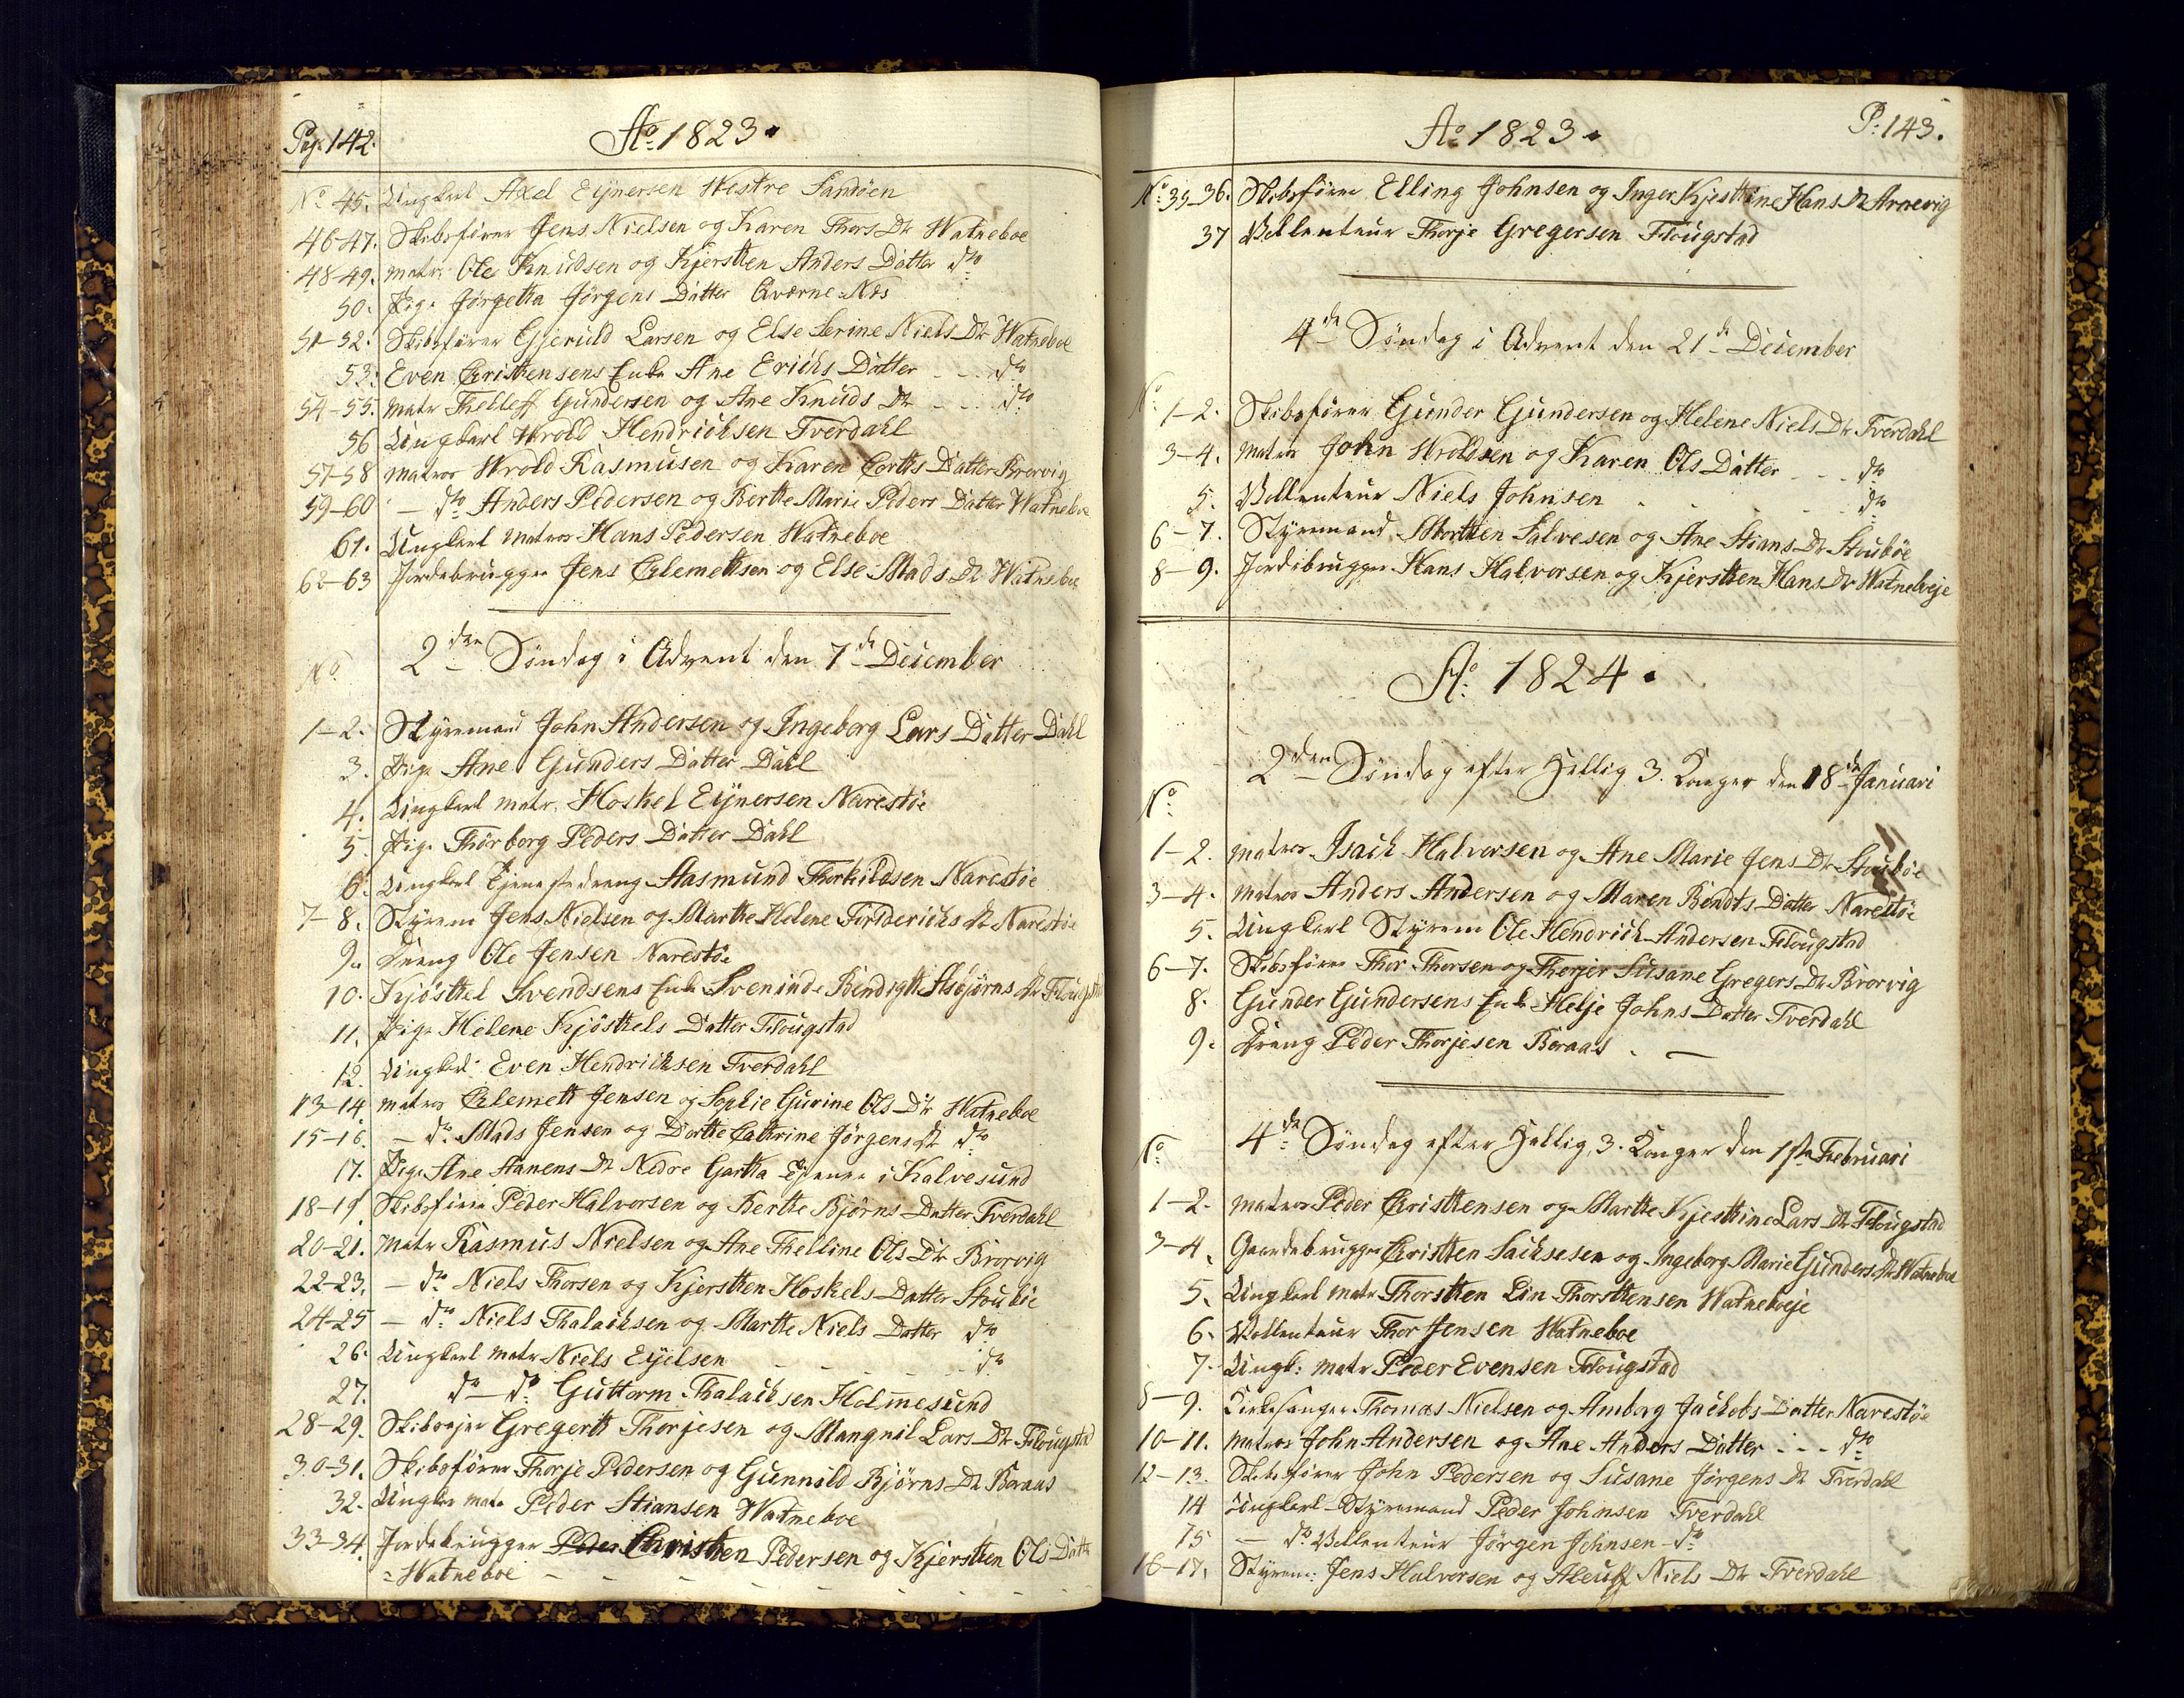 Pag. 142.
Ao. 1823.
No. 45. Ungkarl Axel Eÿnersen Westre Sandöen
46-47. Skibsförer Jens Nielsen og Karen Thors Dtr Watneboe
48-49. matr. Ole Knudsen og Kjersthen Anders Datter do
50. Pige Jörgetha Jörgens Datter Qværne-Næs
51-52. Skibsförer Gjeruld Larsen og Else Serine Niels Dtr Watneboe
53. Even Christhensens Enke Ane Erichs Datter - - - do
54-55. matr Thelleff Gundersen og Ane Knuds Dtr - - - do
56 Ungkarl Wrold Hendrichsen Tverdahl
57-58 matros Wrold Rasmusen og Karen Corths Datter Brorvig
59-60 - do Anders Pedersen og Berthe Marie Peders Datter Watneboe
61. Ungkarl matros Hans Pedersen Watneboe
62-63 Jordebrugger Jens Clemethsen og Else Mads Dtr Watneboe
No 2den Söndag i Advent den 7de December
1-2. Styrmand John Andersen og Ingeborg Lars Datter Dahl
3. Pige Ane Gunders Datter Dahl
4. Ungkarl matr. Hoskel Eÿnersen Narestöe
5. Pige Thorborg Peders Datter Dahl
6. Ungkarl Tjeneste dreng Aasmund Therkildsen Narestöe
7-8. Styrm Jens Nielsen og Marthe Helene Friderichs Dtr Narestöe
9. Dreng Ole Jensen Narestöe
10. Kjösthel Svendsens Enke Sveninde Bendigth Asbjörns Dtr
11. Pige Helene Kjösthels Datter Flougstad
12. Ungkarl: Even Hendrichsen Tverdahl
13-14 matros Clemeth Jensen og Sophie Gurine Ols Dtr Watneboe
15-16. - do Mads Jensen og Dorthe Cathrine Jörgens Dtr do
17. Pige Ane Aanens Dtr Nedre Gartha Tjener i Kalvesund
18-19 Skibsförer Peder Halvorsen og Berthe Björns Datter Tverdahl
20-21. Matr Rasmus Nielsen og Ane Thelline Ols Dtr Brorvig
22-23. - do Niels Thorsen og Kjersthen Hoskels Datter Stouböe
24-25 - do Niels Thalachsen og Marthe Niels Datter do
26. Ungkarl matr Niels Eÿelsen - - - do
27. do - do Guttorm Thalachsen Holmesund
28-29. Skibsejer Gregerth Thorjesen og Mangnil Lars Dtr Flougstad
30-31. Skibsförer Thorje Pedersen og Gunnild Björns Dtr Boraas
32. Ungkar matr Peder Stiansen Watneboe
33-34. Jordebrugger Peder Christhen Pedersen og Kjersthen Ols Datter
= Watneboe - - - - - - - -
Ao 1823.
P. 143.
No. 35-36. Skibsförer Elling Johnsen og Inger Kjesthine Hans Dtr Arnevig
37 Vollenteur Thorje Gregersen Flougstad
4de Söndag i Advent den 21de December
No. 1-2. Skibsförer Gunder Gundersen og Helene Niels Dtr Tverdahl
3-4. matros John Wroldsen og Karen Ols Datter - - - do
5. Vollenteur Niels Johnsen - - - do
6-7. Styrmand Morthen Salvesen og Ane Stians Dtr Stouböe
8-9. Jordebrugger Hans Halvorsen og Kjersthen Hans Dtr Watneboeje
Ao. 1824.
No. 2den Söndag efter Hellig 3. Konger den 18de Januari
1-2. matros Isach Halvorsen og Ane Marie Jens Dtr Stouböe
3-4. matros Anders Andersen og Maren Bendts Datter Narestöe
5. Ungkarl Styrm Ole Hendrich Andersen Flougstad
6-7. Skibsförer Thor Thorsen og Thorjer Susane Gregers Dtr Brorvig
8. Gunder Gundersens Enke Helje Johns Datter Tverdahl
9. Dreng Peder Thorjesen Boraas . -
No. 4de Söndag efter Hellig 3. Konger den 1ste Februari
1-2. matros Peder Christhensen og Marthe Kjesthine Lars Dtr Flougstad
3-4. Gaardebrugger Christhen Sachsesen og Ingeborg Marie Gunders Dtr Watneboe
5. Ungkarl matr Thorsthen Lin Thorsthensen Watneboeje
6. Vollenteur Thor Jensen Watneboe
7. Ungk: matr Peder Evensen Flougstad
8-9. Kirkesanger Thomas Nielsen og Amborg Jachobs Datter Narestöe
10-11. matros John Andersen og Ane Anders Datter - - - do
12-13. Skibsförer John Pedersen og Susane Jörgens Dtr Tverdahl
14 Ungkarl Styrmand Peder Johnsen Tverdahl
15 - do Vollenteur Jörgen Johnsen - do
16-17. Styrm: Jens Halvorsen og Aleuf Niels Dtr Tverdahl